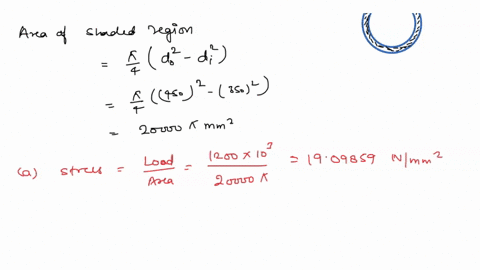 Area of shaded region
= π/4 (d₀² - dᵢ²)
= π/4 ((450)² - (350)²)
= 20000 π mm²
(a) stress = Load/Area = 1200 × 10³/20000 π = 19.09859 N/mm²